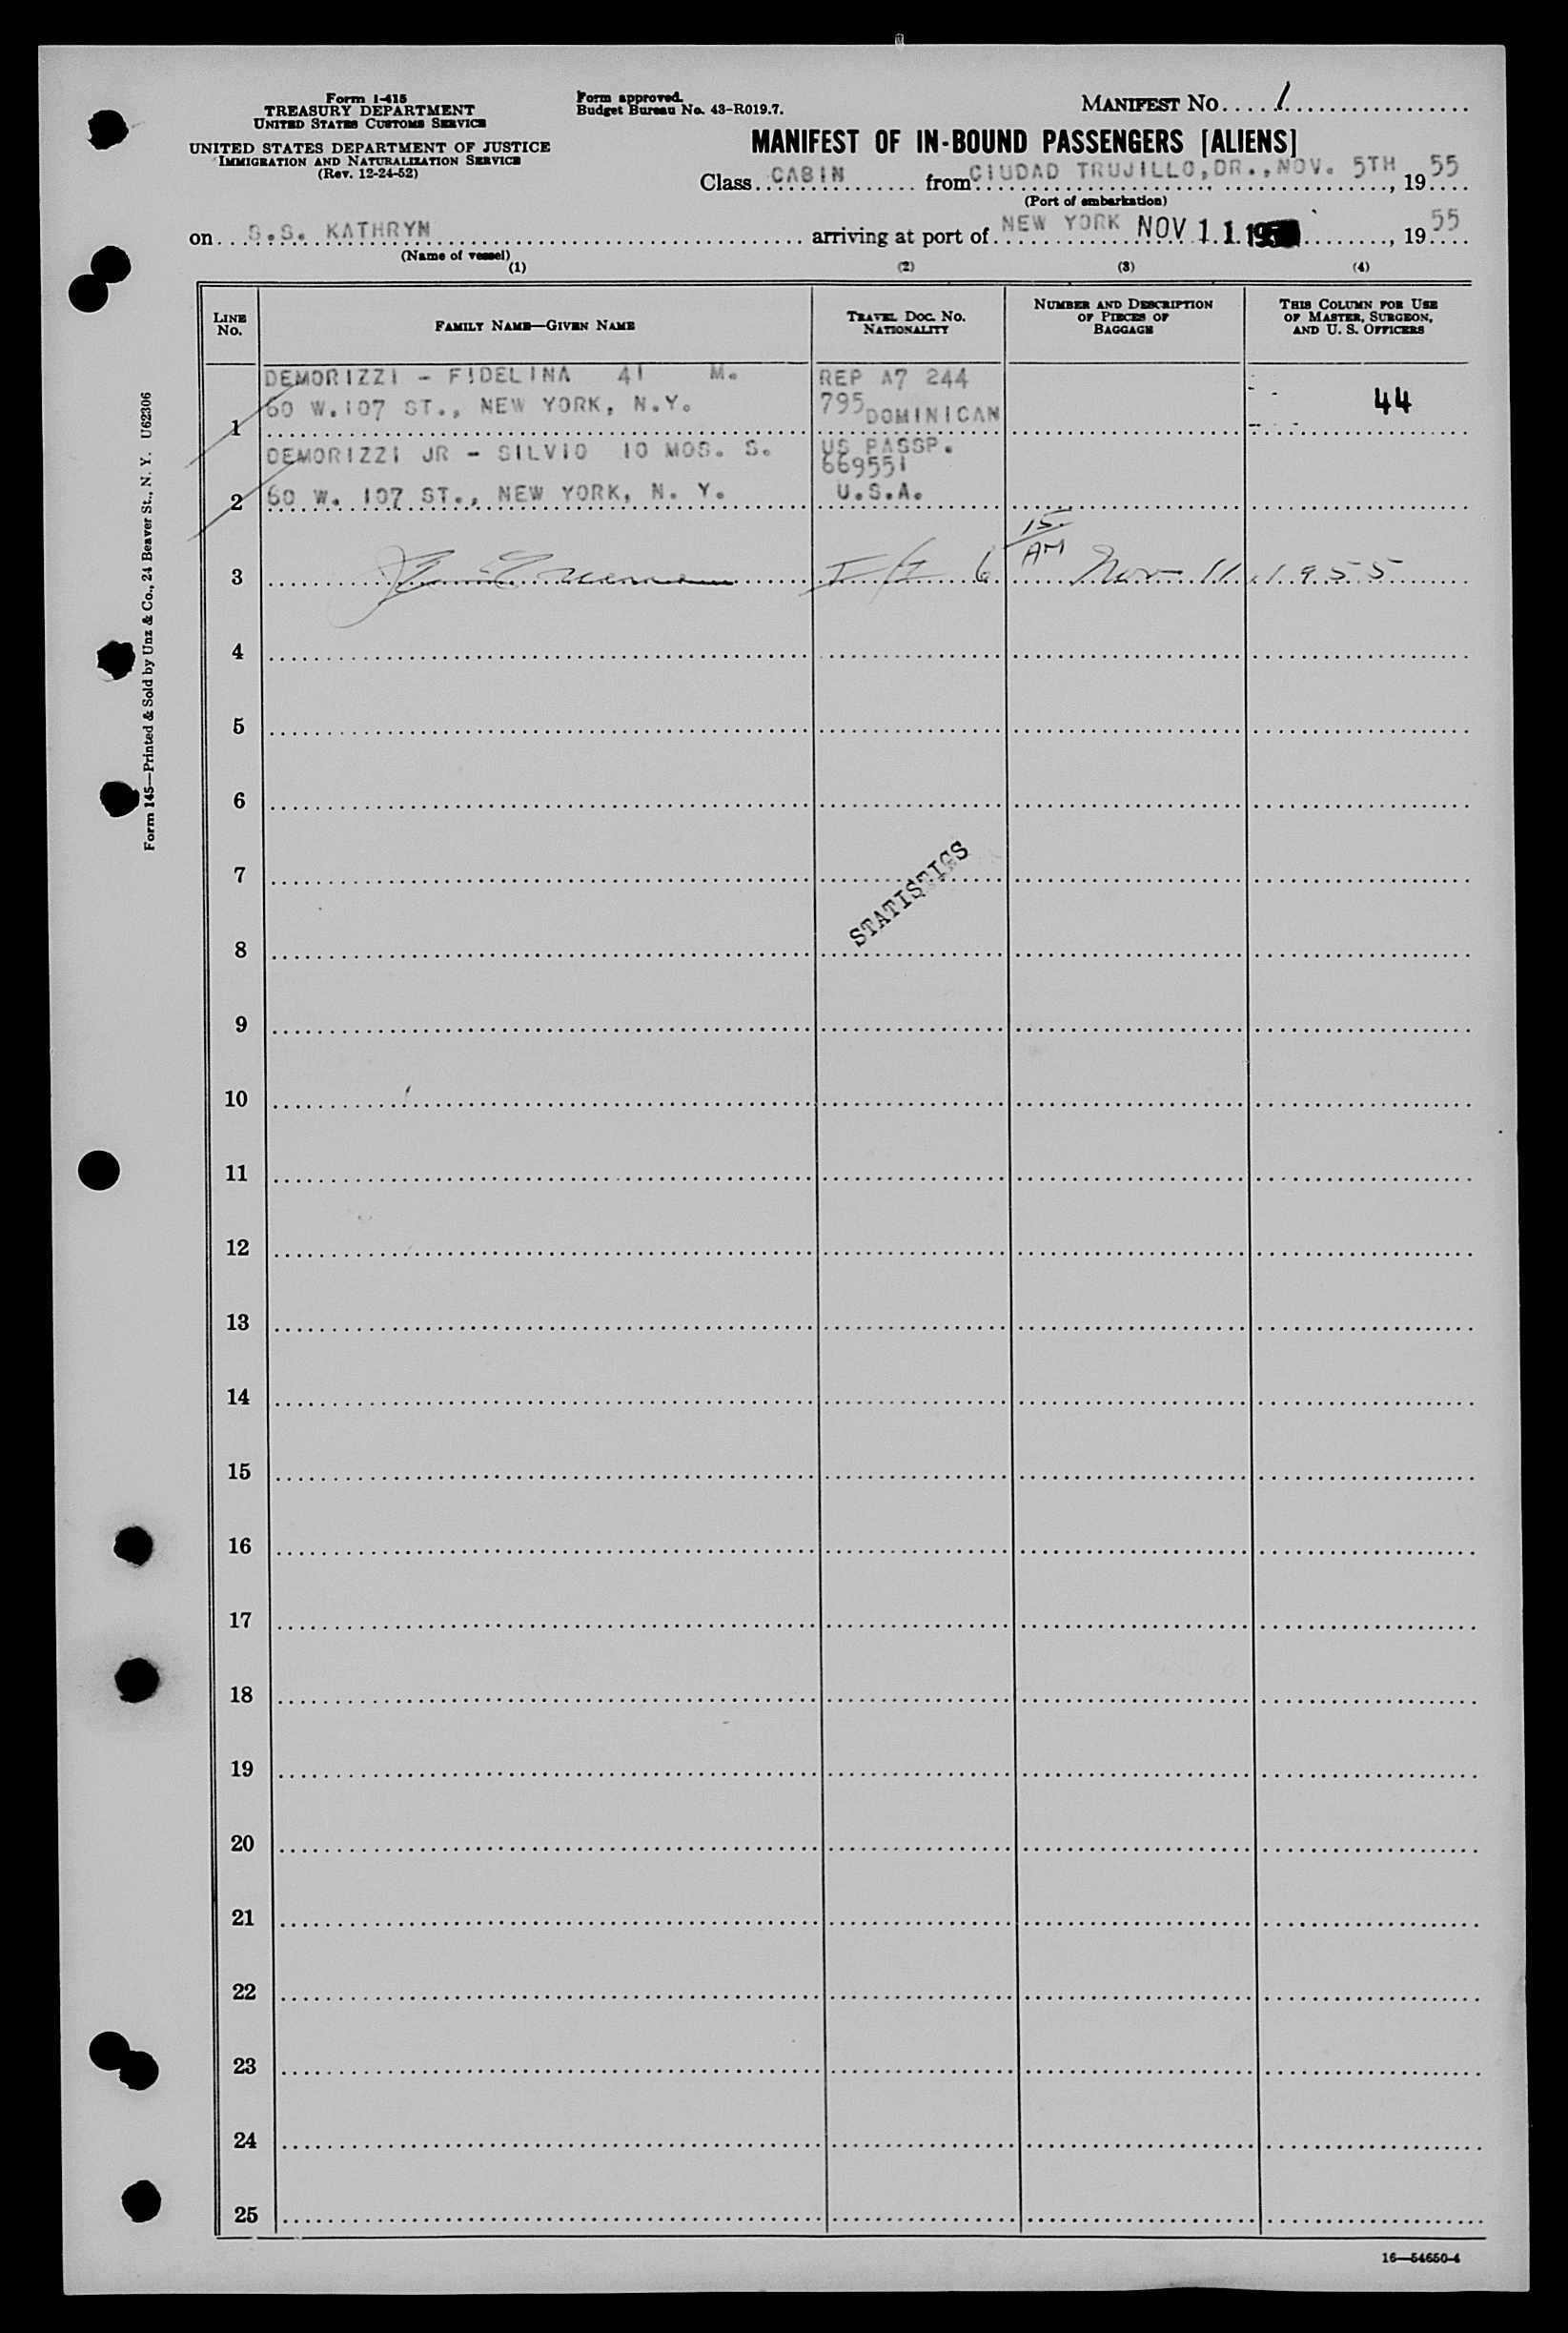 Form I-415
TREASURY DEPARTMENT
UNITED STATES CUSTOMS SERVICE
UNITED STATES DEPARTMENT OF JUSTICE
IMMIGRATION AND NATURALIZATION SERVICE
(Rev. 12-24-52)
Form approved.
Budget Bureau No. 43-R019.7.
MANIFEST NO. 1
MANIFEST OF IN-BOUND PASSENGERS [ALIENS]
Class CABIN from CIUDAD TRUJILLO, DR., NOV. 5TH, 1955
(Port of embarkation)
on S.S. KATHRYN arriving at port of NEW YORK NOV 11 195, 1955
(Name of vessel)
(1) (2) (3) (4)
LINE NO. FAMILY NAME—GIVEN NAME TRAVEL DOC. NO. NATIONALITY NUMBER AND DESCRIPTION OF PIECES OF BAGGAGE THIS COLUMN FOR USE OF MASTER, SURGEON, AND U. S. OFFICERS
DEMORIZZI - FIDELINA 41 M. REP A7 244
1 60 W.107 ST., NEW YORK, N.Y. 795 DOMINICAN 44
DEMORIZZI JR - SILVIO 10 MOS. S. US PASSP. 669551
2 60 W. 107 ST., NEW YORK, N. Y. U.S.A.
3 6 15 AM Nov 11, 1955
4
5
6
7
STATISTICS
8
9
10
11
12
13
14
15
16
17
18
19
20
21
22
23
24
25
16—54650-4
Form 145—Printed & Sold by Unz & Co., 24 Beaver St., N. Y. U62306